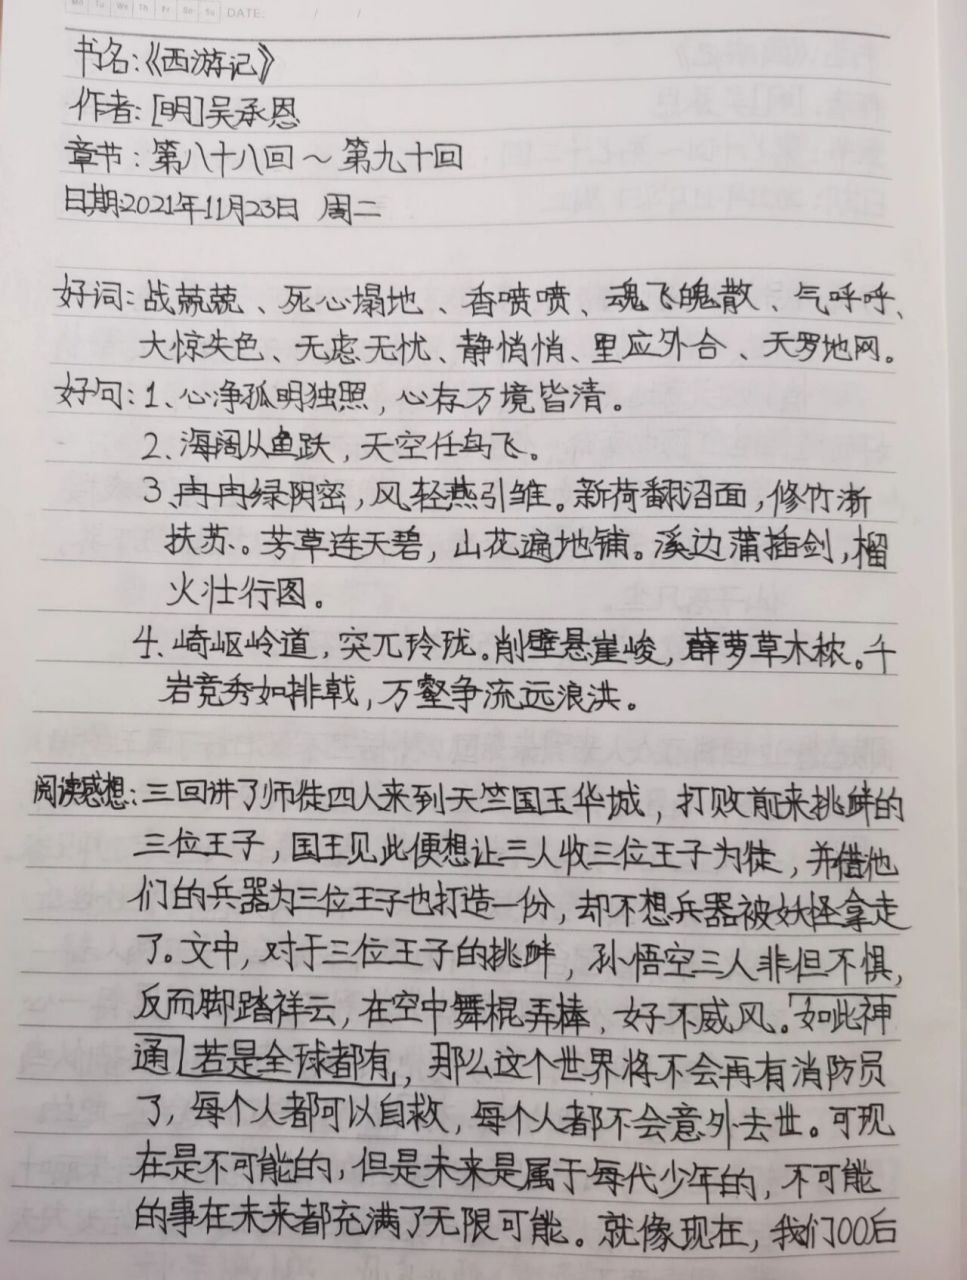 Mo Tu We Th Fr Sa Su DATE: / /
书名:《西游记》
作者:[明]吴承恩
章节:第八十八回～第九十回
日期:2021年11月23日 周二
好词:战兢兢、死心塌地、香喷喷、魂飞魄散、气呼呼、
大惊失色、无虑无忧、静悄悄、里应外合、天罗地网。
好句:1、心净孤明独照,心存万境皆清。
2、海阔从鱼跃,天空任鸟飞。
3、冉冉绿阴密,风轻燕引雏。新荷翻沼面,修竹渐
扶苏。芳草连天碧,山花遍地铺。溪边蒲插剑,榴
火壮行图。
4、崎岖岭道,突兀玲珑。削壁悬崖峻,薜萝草木秾。千
岩竞秀如排戟,万壑争流远浪洪。
阅读感想:三回讲了师徒四人来到天竺国玉华城,打败前来挑衅的
三位王子,国王见此便想让三人收三位王子为徒,并借他
们的兵器为三位王子也打造一份,却不想兵器被妖怪拿走
了。文中,对于三位王子的挑衅,孙悟空三人非但不惧,
反而脚踏祥云,在空中舞棍弄棒,好不威风。如此神
通若是全球都有,那么这个世界将不会再有消防员
了,每个人都可以自救,每个人都不会意外去世。可现
在是不可能的,但是未来是属于每代少年的,不可能
的事在未来都充满了无限可能。就像现在,我们00后